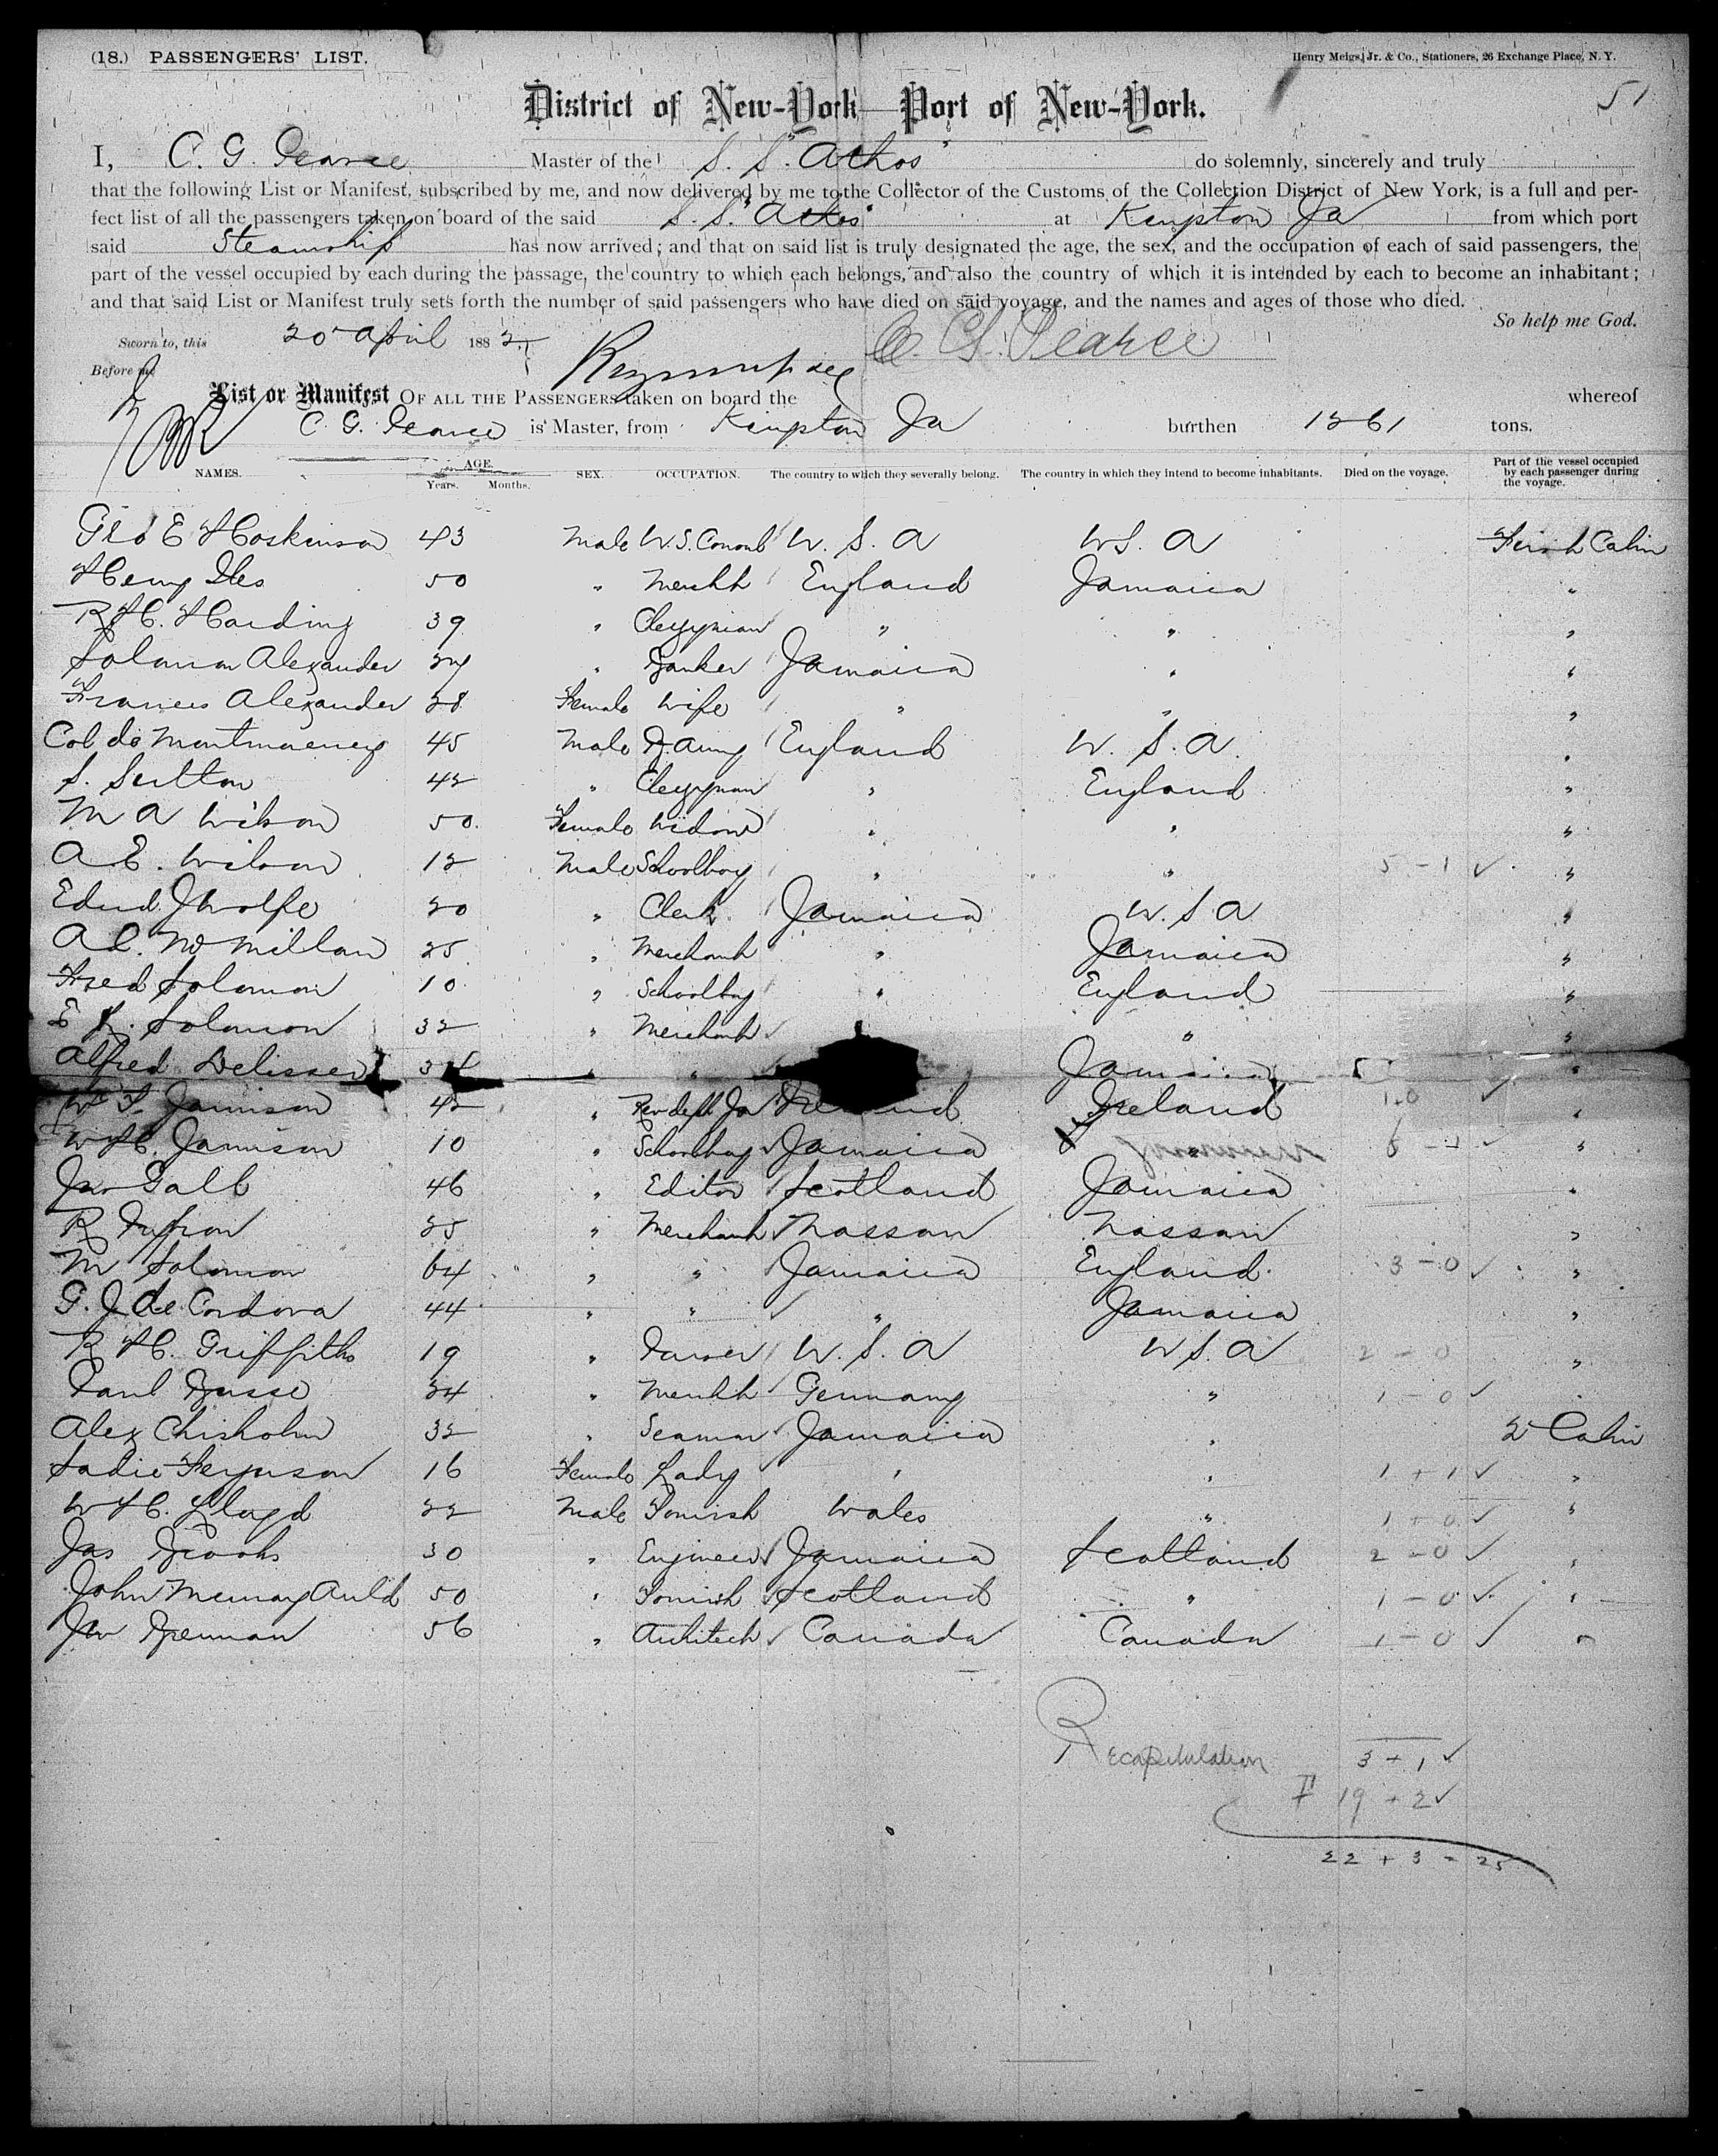 (18.) PASSENGERS' LIST.
Henry Meigs, Jr. & Co., Stationers, 26 Exchange Place, N. Y.
51
District of New-York—Port of New-York.
I, C. G. Pearce Master of the S. S. "Athos" do solemnly, sincerely and truly
that the following List or Manifest, subscribed by me, and now delivered by me to the Collector of the Customs of the Collection District of New York, is a full and per-
fect list of all the passengers taken on board of the said S. S. "Athos" at Kingston Ja from which port
said Steamship has now arrived; and that on said list is truly designated the age, the sex, and the occupation of each of said passengers, the
part of the vessel occupied by each during the passage, the country to which each belongs, and also the country of which it is intended by each to become an inhabitant;
and that said List or Manifest truly sets forth the number of said passengers who have died on said voyage, and the names and ages of those who died.
So help me God.
Sworn to, this 20 April 1882
C. G. Pearce
Before me
List or Manifest OF ALL THE PASSENGERS taken on board the whereof
C. G. Pearce is Master, from Kingston Ja burthen 1261 tons.
NAMES. AGE. Years. Months. SEX. OCCUPATION. The country to which they severally belong. The country in which they intend to become inhabitants. Died on the voyage. Part of the vessel occupied by each passenger during the voyage.
Geo E Hoskinson 43 Male U.S. Consul U. S. A U S. A First Cabin
Henry Iles 50 " Mercht England Jamaica "
R. H. Harding 39 " Clergyman " " "
Solomon Alexander " Banker Jamaica " "
Frances Alexander 28 Female Wife " " "
Col de Montmorency 45 Male B. Army England U. S. A. "
S. Sutton 42 " Clergyman " England "
M A Wilson 50 Female Widow " " "
A. E. Wilson 12 Male Schoolboy " " 5 - 1 ✓ "
Edwd J Wolfe 20 " Clerk Jamaica U. S. A "
A McMillan 25 " Merchant " Jamaica "
Fred Solomon 10 " Schoolboy " England "
E Solomon 32 " Merchant " "
Alfred Delisser 34 " " Jamaica "
Jamison 42 " Ireland Ireland 1-0 ✓ "
W H. Jamison 10 " Schoolboy Jamaica ✓ "
Jno Gall 46 " Editor Scotland Jamaica "
R 25 " Merchant Nassau Nassau "
M Solomon 64 " " Jamaica England 3 - 0 ✓ "
G. J. de Cordova 44 " " " Jamaica "
R H. Griffiths 19 " U. S. A U S. A 2 - 0 "
Paul Busse 24 " Mercht Germany " 1 - 0 ✓
Alex Chisholm 32 " Seaman Jamaica " 2 Cabin
Sadie Ferguson 16 Female Lady " " 1 + 1 ✓ "
W H. Lloyd 22 Male Tourist Wales " 1 + 0 ✓ "
Jas Brooks 30 " Engineer Jamaica Scotland 2 - 0 ✓ "
John Murray Auld 50 " Tourist Scotland " 1 - 0 ✓ "
Brennan 56 " Architect Canada Canada 1 - 0 ✓ "
Recapitulation 3 + 1 ✓
19 + 2 ✓
22 + 3 = 25